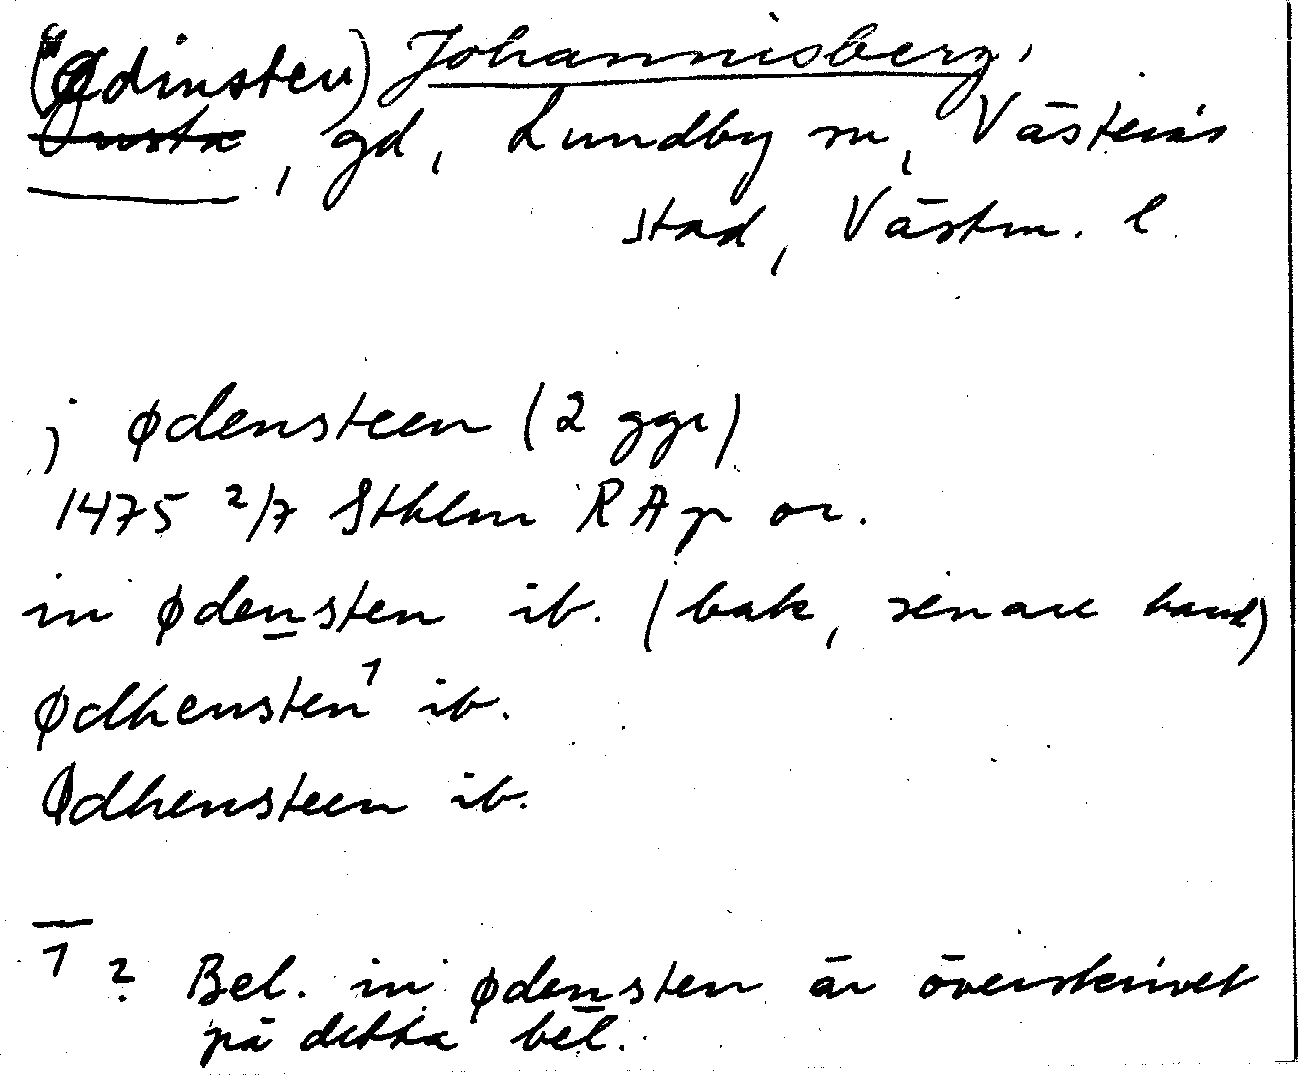 (Ødinsten) Johannisberg,
Onsta, gd, Lundby sn, Västerås
stad, Västm. l.
j ødensteen (2 ggr)
1475 2/7 Sthlm RAp or.
in ødensten ib. (bak, senare hand)
ødhensten¹ ib.
Ødhensteen ib.
1 ? Bel. in ødensten är överskrivet
på detta bel.